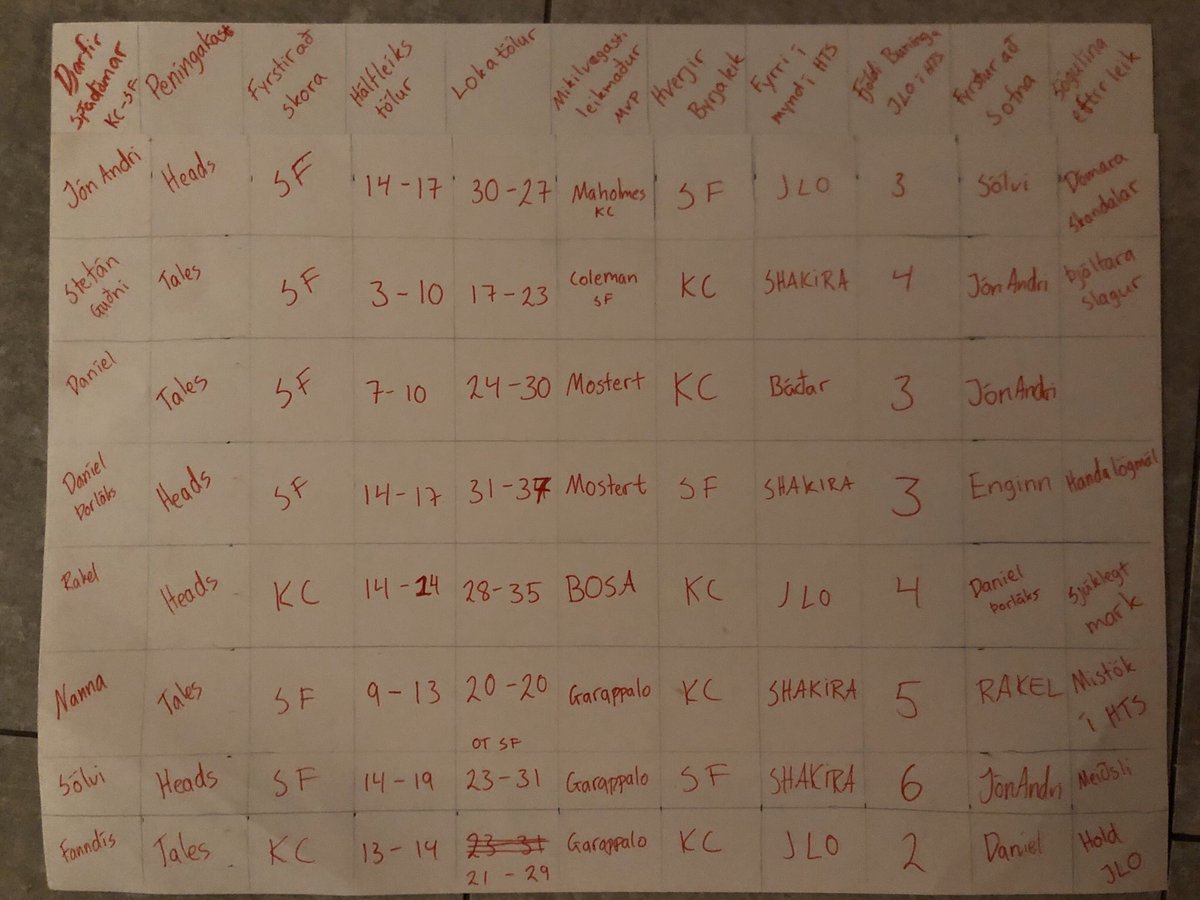 Þarfir spádómar KC-SF | Peningakast | Fyrstir að skora | Hálfleiks tölur | Lokatölur | Mikilvægasti leikmaður MVP | Hverjir Byrja leik | Fyrri í mynd í HTS | Fjöldi Búninga JLO í HTS | Fyrstur að sofna | Sögulína eftir leik
Jón Andri | Heads | SF | 14-17 | 30-27 | Maholmes KC | SF | JLO | 3 | Sölvi | Dómara skandalar
Stefán Guðni | Tales | SF | 3-10 | 17-23 | Coleman SF | KC | SHAKIRA | 4 | Jón Andri | Þjálfara slagur
Daníel | Tales | SF | 7-10 | 24-30 | Mostert | KC | Báðar | 3 | Jón Andri
Daníel Þorláks | Heads | SF | 14-17 | 31-37 | Mostert | SF | SHAKIRA | 3 | Enginn | Handalögmál
Rakel | Heads | KC | 14-14 | 28-35 | BOSA | KC | JLO | 4 | Daníel Þorláks | Sjúklegt mark
Nanna | Tales | SF | 9-13 | 20-20 OT SF | Garappalo | KC | SHAKIRA | 5 | RAKEL | Mistök í HTS
Sölvi | Heads | SF | 14-19 | 23-31 | Garappalo | SF | SHAKIRA | 6 | Jón Andri | Meiðsli
Fanndís | Tales | KC | 13-14 | 23-31 21-29 | Garappalo | KC | JLO | 2 | Daníel | Hold JLO